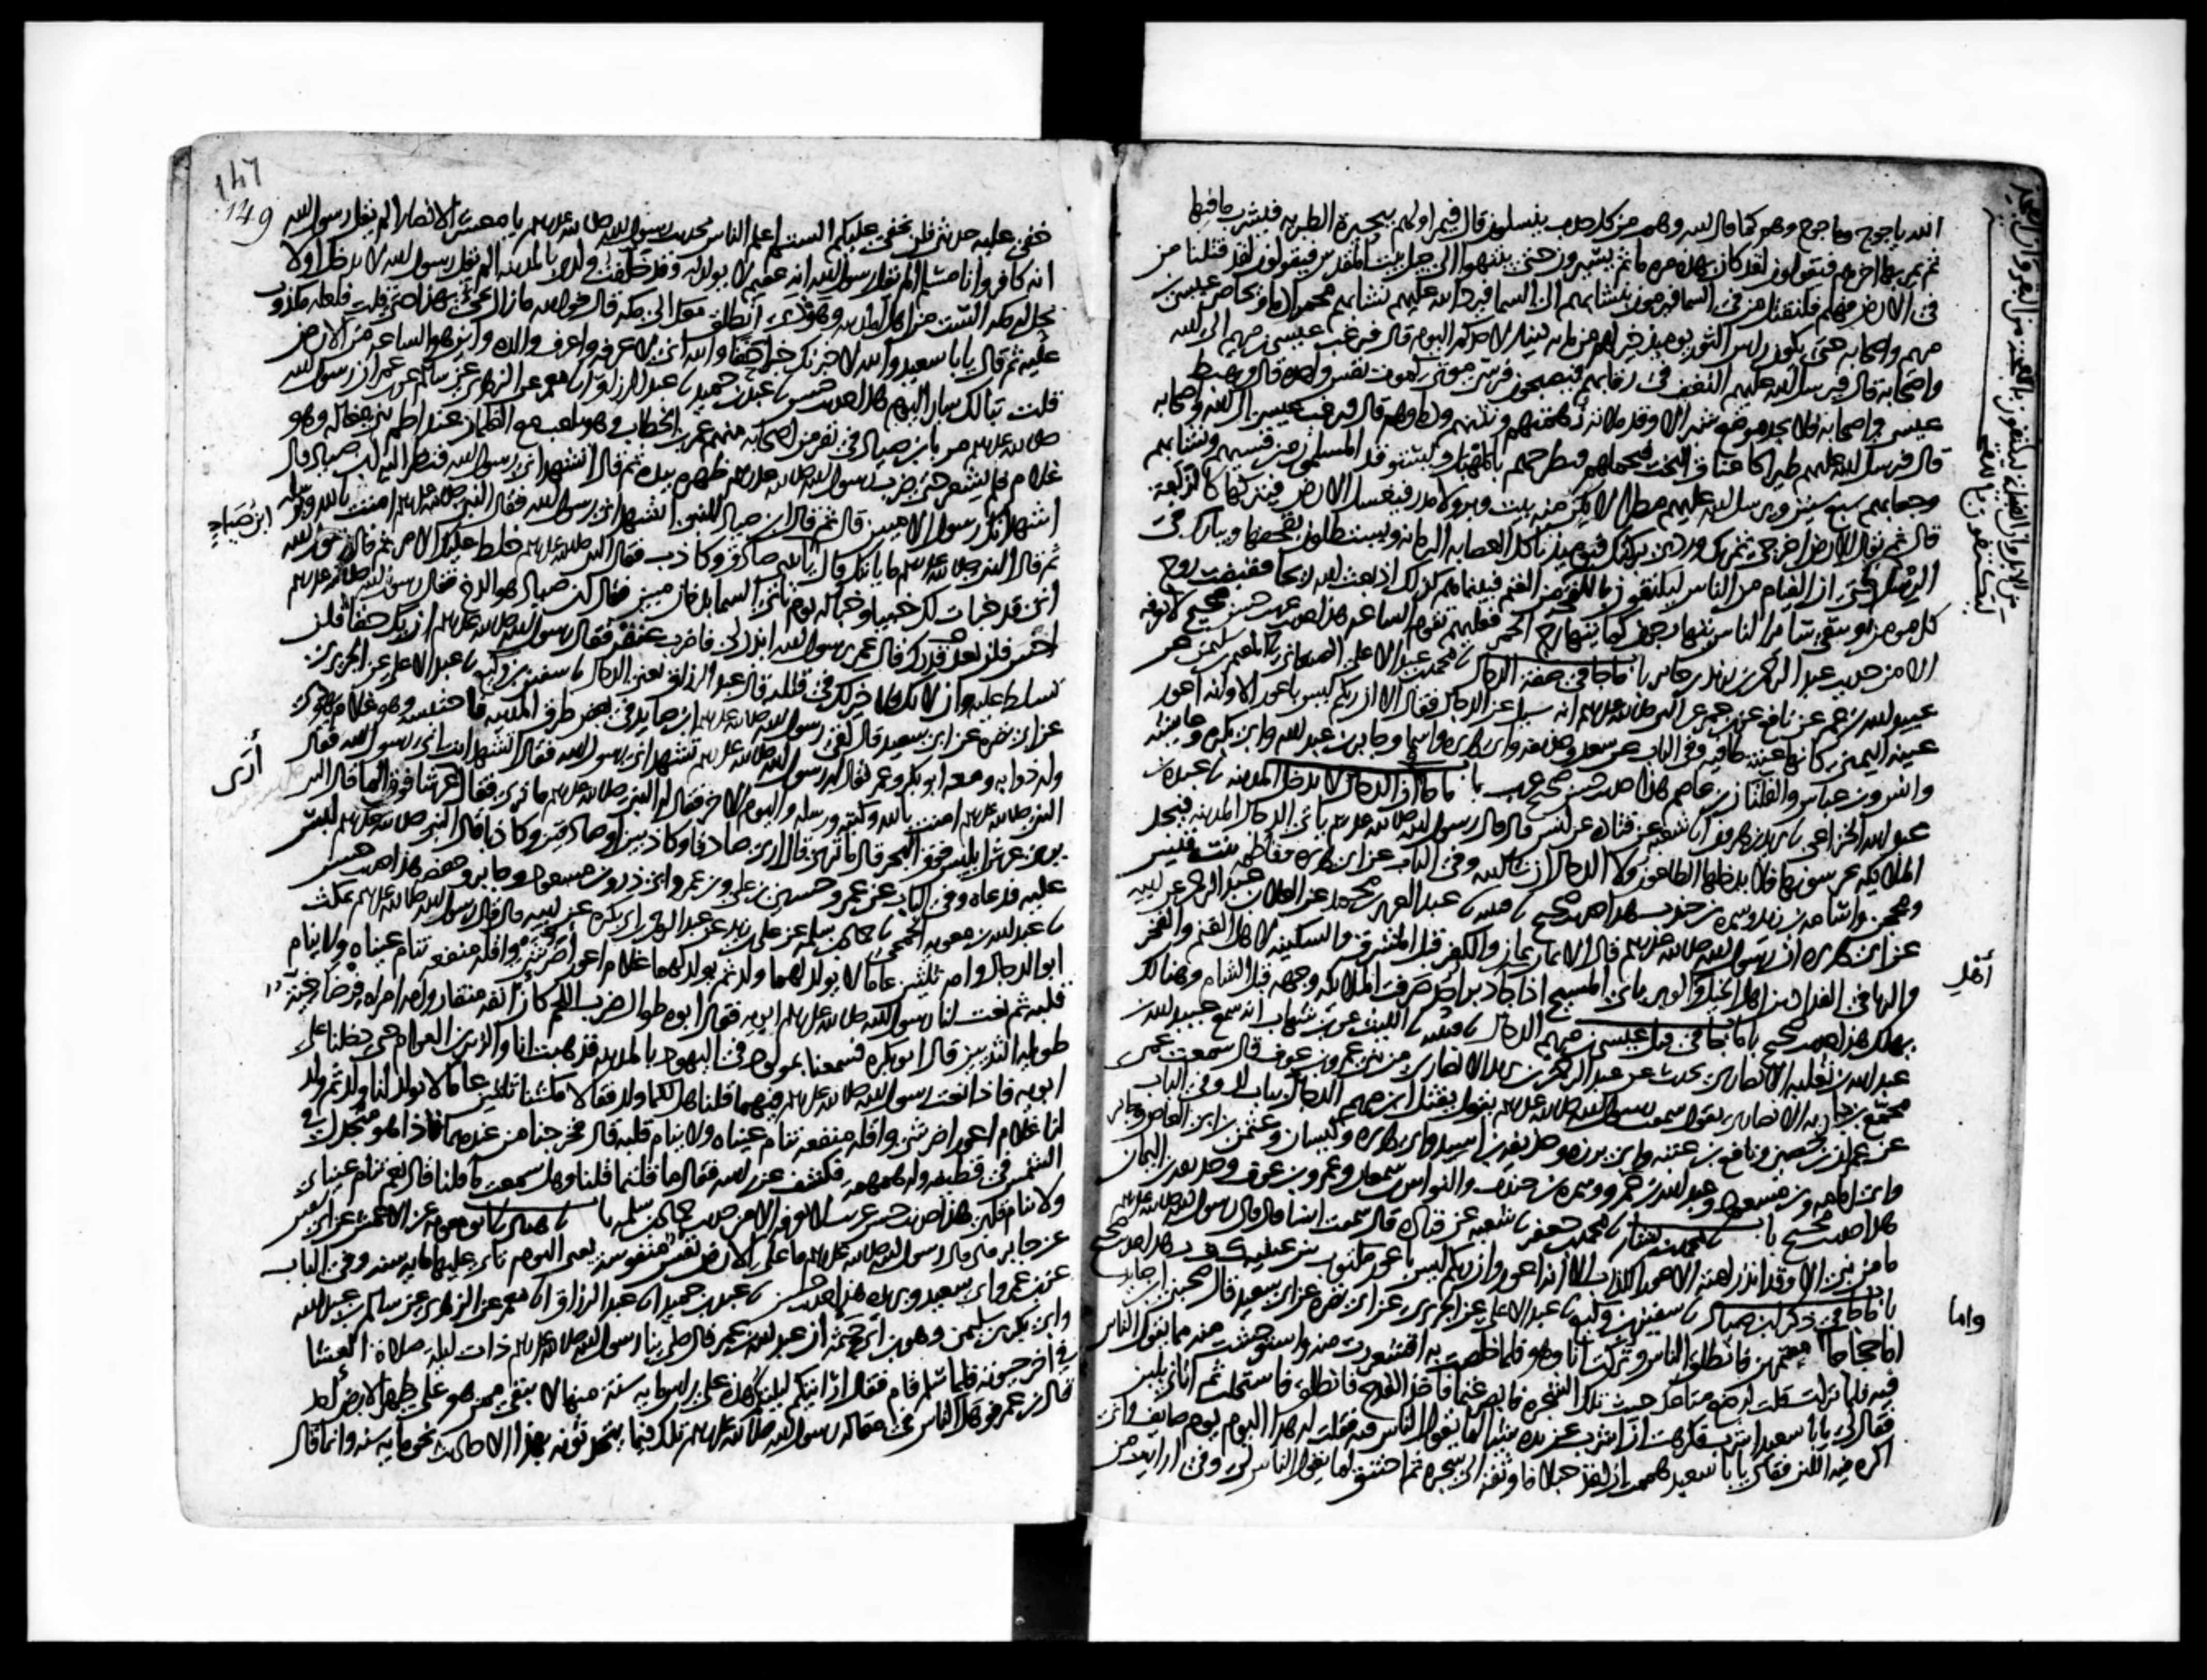 الله ياجوج وماجوج وهو كما قال الله وهم من كل حدب ينسلون قال فيمر اولهم ببحيرة الطبريه فيشرب ما فيها
ثم يمر بها اخرهم فيقولون لقد كان بهذه مره ما ثم يسيرون حتى ينتهوا الى جبل بيت المقدس فيقولون لقد قتلنا من
في الارض فهلم فلنقتل من في السما فيرمون بنشابهم الى السما فيرد الله عليهم نشابهم محمرا دما ويحاصر عيسى بن
مريم واصحابه حتى يكون راس الثور يوميذ خير لهم من مايه دينار لاحدكم اليوم قال فيرغب عيسى بن مريم الى الله
واصحابه قال فيرسل الله عليهم النغف في رقابهم فيصبحون فرسى موتى كموت نفس واحده قال ويهبط
عيسى واصحابه فلا يجد موضع شبر الا وقد ملاته زهمتهم ونتنهم ودماوهم قال فيرغب عيسى الى الله واصحابه
قال فيرسل الله عليهم طيرا كاعناق البخت فتحملهم فتطرحهم بالمهبل ويستوقد المسلمون من قسيهم ونشابهم
وجعابهم سبع سنين ويرسل الله عليهم مطرا لا يكن منه بيت وبر ولا مدر فيغسل الارض فيتركها كالزلفة
قال ثم يقال للارض اخرجي ثمرتك وردي بركتك فيوميذ تاكل العصابه الرمانه ويستظلون بقحفها ويبارك في
الرسل حتى ان الفيام من الناس ليكتفون باللقحه من الغنم فبينما هم كذلك اذ بعث الله ريحا فقبضت روح
كل مومن ويبقى ساير الناس يتهارجون كما يتهارج الحمر فعليهم تقوم الساعه هذا حديث حسن صحيح لا نعرفه
الا من حديث عبد الرحمن بن يزيد بن جابر باب ما جا في صفة الدجال نا محمد بن عبد الاعلى الصنعاني نا المعتمر بن سليمن عن
عبيد الله بن عمر عن نافع عن ابن عمر عن النبي صلى الله عليه وسلم انه سيل عن الدجال فقال الا ان ربكم ليس باعور الا وانه اعور
عينه اليمنى كانها عنبة طافيه وفي الباب عن سعد وحذيفه وابي هريره واسما وجابر بن عبد الله وابي بكره وعايشه
وانس وابن عباس والفلتان بن عاصم هذا حديث حسن صحيح غريب باب ما جا ان الدجال لا يدخل المدينه نا عبده بن
عبد الله الخزاعي نا يزيد بن هرون انا شعبه عن قتاده عن انس قال قال رسول الله صلى الله عليه وسلم ياتي الدجال المدينه فيجد
الملايكه يحرسونها فلا يدخلها الطاعون ولا الدجال ان شا الله وفي الباب عن ابي هريره وفاطمه بنت قيس
ومحجن واسامه بن زيد وسمره بن جندب هذا حديث صحيح نا قتيبه نا عبد العزيز بن محمد عن العلا بن عبد الرحمن عن ابيه
عن ابي هريره ان رسول الله صلى الله عليه وسلم قال الايمان يمان والكفر قبل المشرق والسكينه لاهل الغنم والفخر
والريا في الفدادين اهل الخيل والوبر ياتي المسيح اذا جا دبر احد صرفت الملايكه وجهه قبل الشام وهنالك
يهلك هذا حديث صحيح باب ما جا في قتل عيسى بن مريم الدجال نا قتيبه نا الليث عن ابن شهاب انه سمع عبيد الله بن
عبد الله بن ثعلبه الانصاري يحدث عن عبد الرحمن بن يزيد الانصاري من بني عمرو بن عوف قال سمعت عمي
مجمع بن جاريه الانصاري يقول سمعت رسول الله صلى الله عليه وسلم يقول يقتل ابن مريم الدجال بباب لد وفي الباب
عن عمران بن حصين ونافع بن عتبه وابي برزه وحذيفه بن اسيد وابي هريره وكيسان وعثمن بن ابي العاص وجابر
وابي امامه وابن مسعود وعبد الله بن عمرو وسمره بن جندب والنواس بن سمعان وعمرو بن عوف وحذيفه بن اليمان
هذا حديث صحيح باب نا محمد بن بشار نا محمد بن جعفر نا شعبه عن قتاده قال سمعت انسا قال قال رسول الله صلى الله عليه وسلم
ما من نبي الا وقد انذر امته الاعور الكذاب الا انه اعور وان ربكم ليس باعور مكتوب بين عينيه ك ف ر هذا حديث صحيح
باب ما جا في ذكر ابن صياد نا سفين بن وكيع نا عبد الاعلى عن الجريري عن ابي نضره عن ابي سعيد قال صحبني ابن صايد
اما حجاجا او معتمرين فانطلق الناس وتركت انا وهو فلما خلصت به اقشعررت منه واستوحشت منه مما يقول الناس
فيه فلما نزلت قلت له ضع متاعك حيث تلك الشجره فابصر غنما فاخذ القدح فانطلق فاستحلب ثم اتاني بلبن
فقال لي يابا سعيد اشرب فكرهت ان اشرب عن يده شيئا لما يقول الناس فيه فقلت له هذا اليوم يوم صايف واني
اكره فيه اللبن فقال يابا سعيد هممت ان اخذ حبلا فاوثقه الى شجره ثم اختنق لما يقول الناس لي وفي ارايت من
اهل
واما
147
149
خفي عليه حديثي فلن يخفى عليكم الستم اعلم الناس بحديث رسول الله صلى الله عليه وسلم يا معشر الانصار الم يقل رسول الله
انه كافر وانا مسلم الم يقل رسول الله انه عقيم لا يولد له وقد خلفت ولدي بالمدينه الم يقل رسول الله لا يدخل او لا
تحل له مكه الست من اهل المدينه وهو ذا انطلق معك الى مكه قال فوالله ما زال يجي بهذا حتى قلت فلعله مكذوب
عليه ثم قال يابا سعيد والله لاخبرنك خبرا حقا والله اني لاعرفه واعرف والده واين هو الساعه من الارض
قلت تبا لك ساير اليوم هذا حديث حسن نا عبد بن حميد نا عبد الرزاق انا معمر عن الزهري عن سالم عن ابن عمر ان رسول الله
صلى الله عليه وسلم مر بابن صياد في نفر من اصحابه منهم عمر بن الخطاب وهو يلعب مع الغلمان عند اطم بني مغاله وهو
غلام فلم يشعر حتى ضرب رسول الله صلى الله عليه وسلم ظهره بيده ثم قال اتشهد اني رسول الله فنظر اليه ابن صياد قال
اشهد انك رسول الاميين قال ثم قال ابن صياد للنبي اتشهد اني رسول الله فقال النبي صلى الله عليه وسلم امنت بالله ورسله
ثم قال النبي صلى الله عليه وسلم ما ياتيك قال ياتيني صادق وكاذب فقال النبي صلى الله عليه وسلم خلط عليك الامر ثم قال رسول الله
اني قد خبات لك خبيا وخبا له يوم تاتي السما بدخان مبين فقال ابن صياد هو الدخ فقال رسول الله صلى الله عليه وسلم
اخس فلن تعدو قدرك قال عمر يرسول الله ايذن لي فاضرب عنقه فقال رسول الله صلى الله عليه وسلم ان يك حقا فلن
تسلط عليه وان لا يك فلا خير لك في قتله قال عبد الرزاق يعني الدجال نا سفين بن وكيع نا عبد الاعلى عن الجريري
عن ابي نضره عن ابي سعيد قال لقي رسول الله صلى الله عليه وسلم ابن صايد في بعض طرق المدينه فاحتبسه وهو غلام يهودي
وله ذوابه ومعه ابو بكر وعمر فقال له رسول الله صلى الله عليه وسلم تشهد اني رسول الله فقال اتشهد انت اني رسول الله فقال
النبي صلى الله عليه وسلم امنت بالله وكتبه ورسله واليوم الاخر فقال له النبي صلى الله عليه وسلم ما ترى فقال عرشا فوق الما قال النبي
يرى عرش ابليس فوق البحر قال ما ترى قال ارى صادقا وكاذبين او صادقين وكاذبا قال النبي صلى الله عليه وسلم لبس
عليه فدعاه وفي الباب عن عمر وحسين بن علي وابن عمر وابي ذر وابن مسعود وجابر وحفصه هذا حديث حسن
نا عبد الله بن معويه الجمحي نا حماد بن سلمه عن علي بن زيد عن عبد الرحمن بن ابي بكره عن ابيه قال قال رسول الله صلى الله عليه وسلم يمكث
ابو الدجال وامه ثلثين عاما لا يولد لهما ولد ثم يولد لهما غلام اعور اضر شي واقله منفعه تنام عيناه ولا ينام
قلبه ثم نعت لنا رسول الله صلى الله عليه وسلم ابويه فقال ابوه طوال ضرب اللحم كان انفه منقار وامه امراه فرضاخية
طويله الثديين قال ابو بكره فسمعنا بمولود في اليهود بالمدينه فذهبت انا والزبير بن العوام حتى دخلنا على
ابويه فاذا نعت رسول الله صلى الله عليه وسلم فيهما قلنا هل لكما ولد فقالا مكثنا ثلثين عاما لا يولد لنا ولد ثم ولد
لنا غلام اعور اضر شي واقله منفعه تنام عيناه ولا ينام قلبه قال فخرجنا من عندهما فاذا هو منجدل في
الشمس في قطيفه وله همهمه فكشف عن راسه فقال ما قلتما قلنا وهل سمعت ما قلنا قال نعم تنام عيناي
ولا ينام قلبي هذا حديث حسن غريب لا نعرفه الا من حديث حماد بن سلمه باب نا هناد نا ابو معويه عن الاعمش عن ابي سفين
عن جابر قال قال رسول الله صلى الله عليه وسلم ما على الارض نفس منفوسه يعني اليوم تاتي عليها مايه سنه وفي الباب
عن ابن عمر وابي سعيد وبريده هذا حديث حسن نا عبد بن حميد انا عبد الرزاق انا معمر عن الزهري عن سالم بن عبد الله
وابي بكر بن سليمن وهو ابن ابي حثمه ان عبد الله بن عمر قال صلى بنا رسول الله صلى الله عليه وسلم ذات ليله صلاة العشا
في اخر حيوته فلما سلم قام فقال ارايتكم ليلتكم هذه على راس مايه سنة منها لا يبقى ممن هو على ظهر الارض احد
قال ابن عمر فوهل الناس في مقاله رسول الله صلى الله عليه وسلم تلك فيما يتحدثونه بهذه الاحاديث نحو مايه سنه وانما قال
ابن صياد